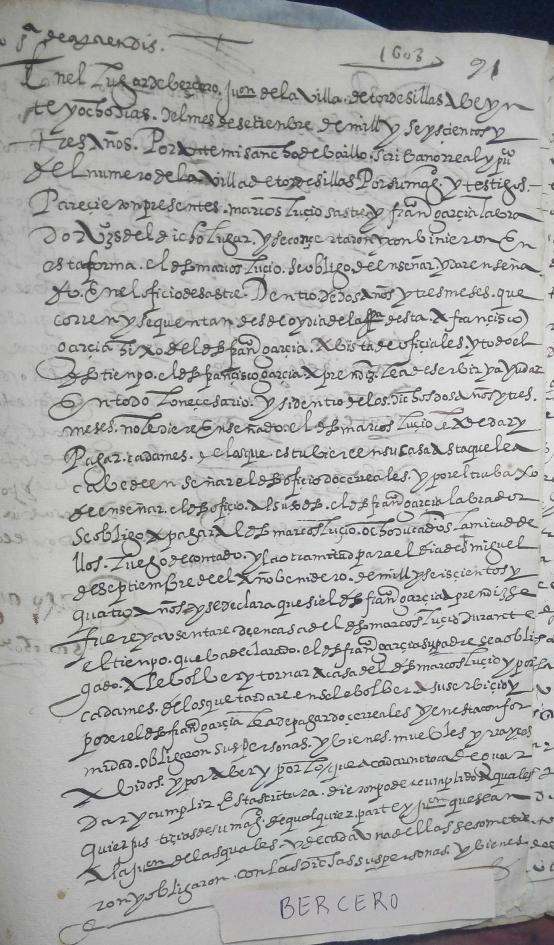 de aprendis.
1603
91
En el lugar de berçero. juron de la Villa. de tordesillas A beyn
te y ocho dias. del mes de setienbre de mill y seyscientos y
tres Años. Por Ante mi sancho de bаillo. scribano real y puco
del numero de la Villa de tordesillas Por su mag. y testigos.
Pareçieron presentes. marcos luçio sastre y franco garçia labra
dor Vzs del dicho lugar. y se conçertaron y conbinieron En
esta forma. el dho marcos luçio. se obligo. de enseñar. y dar enseña
do. En el ofiçio de sastre. Dentro de dos Años y tres meses. que
corren y se quentan desde oy dia de la fha desta. A françisco
garçia hixo del dho franco garçia. A bista de ofiçiales, y todo el
dho tiempo. el dho françisco garçia Aprendiz. le a de serbir y a yudar
En todo lo neçessario. y si dentro de los dichos dos Años y tres.
meses. no le diere Enseñado. el dho marcos luçio le A de dar y
Pagar. cada mes. de los que estubiere en su casa Asta que le a
cabe de enseñar el dho ofiçio doce reales. y por el trabaxo
de enseñar el dho ofiçio. Al suso dho. el dho franco garçia labrador
se obligo A pagar Al dho marcos luçio. ocho ducados la mitad de
llos. luego de contado. y la otra mitad para el dia de s miguel
de septiembre de el Año benidero. de mill y seisçientos y
quatro Años. y se declara que si el dho franco garçia Aprendiz se
fuere y ausentare de en casa del dho marcos luçio Durante
el tiempo. que ba declarado. el dho franco garçia su padre sea obli
gado. A le bolber y tornar A casa del dho marcos luçio y por
cada mes. de los que tardare en se le bolber. A su serbiçio y
poder el dho franco garçia le a de pagar doce reales y en esta confor
midad. obligaron sus personas. y bienes. muebles y rayces
Abidos. y por Aber y por lo que A cada uno toca de guar
dar y cumplir Esta scritura. dieron poder cumplido A quales
quier justiçias de su mag. de qualquier. parte y juron que sean
A la juron de las quales. y de cada Una dellas se sometie
ron y obligaron. con las dichas sus personas. y bienes
BERCERO